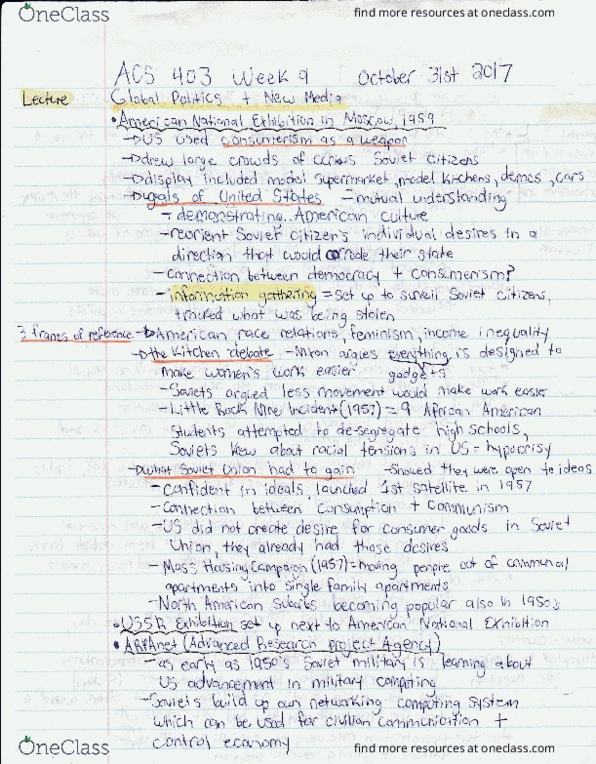 OneClass
find more resources at oneclass.com
ACS 403 Week 9 October 31st 2017
Lecture Global Politics + New Media
•American National Exhibition in Moscow, 1959
→US used consumerism as a weapon
→drew large crowds of curious Soviet citizens
→display included model supermarket, model kitchens, demos, cars
→goals of United States - mutual understanding
- demonstrating American culture
-reorient Soviet citizen's individual desires in a
direction that would corrode their state
-connection between democracy + consumerism?
-information gathering = set up to surveil Soviet citizens,
tracked what was being stolen
3 frames of reference →American race relations, feminism, income inequality
→the kitchen debate -Nixon argues everything is designed to
make women's work easier gadgets
-Soviets argued less movement would make work easier
-Little Rock Nine Incident (1957) = 9 African American
Students attempted to de-segregate high schools,
Soviets knew about racial tensions in US = hypocrisy
→what Soviet Union had to gain -showed they were open to ideas
-confident in ideals, launched 1st satellite in 1957
-connection between consumption + communism
-US did not create desire for consumer goods in Soviet
Union, they already had those desires
-Mass Housing Campaign (1957)=moving people out of communal
apartments into single family apartments
-North American suburbs becoming popular also in 1950s
•USSR Exhibition set up next to American National Exhibition
•ARPAnet (Advanced Research Project Agency)
-as early as 1950's Soviet military is learning about
US advancement in military computing
-Soviets build up own networking computing system
which can be used for civilian communication +
control economy
OneClass
find more resources at oneclass.com